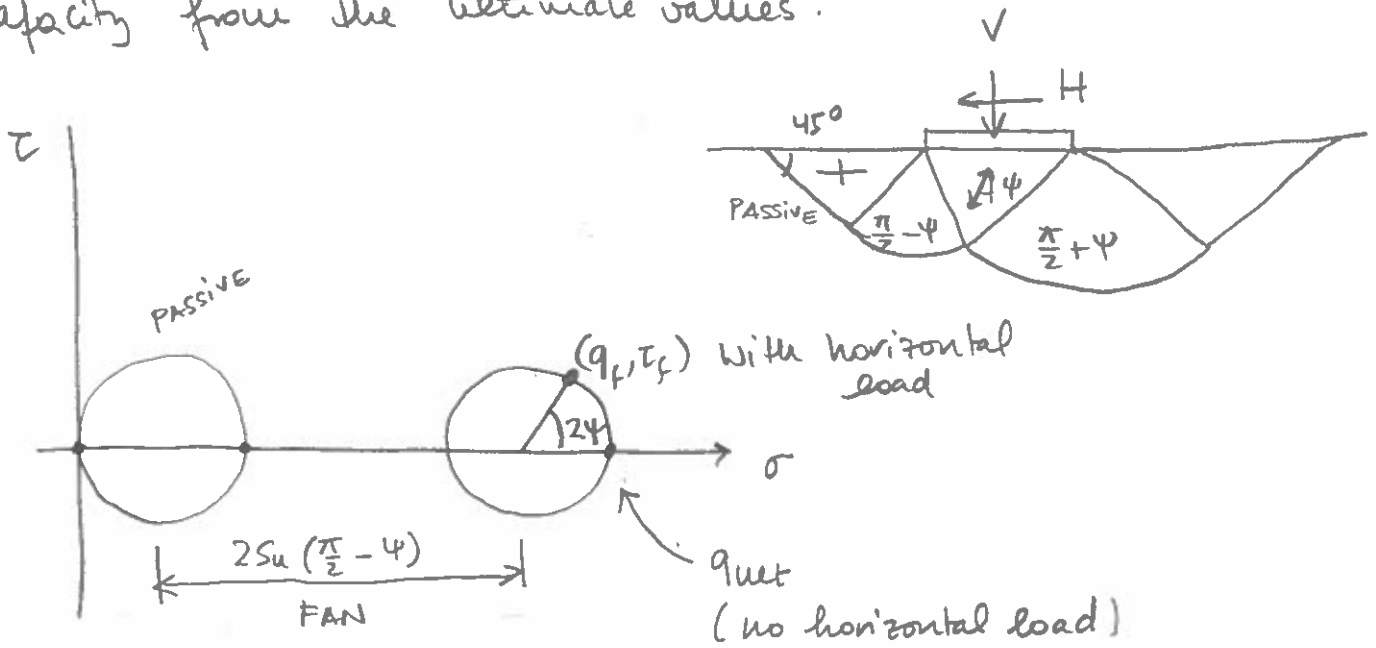 capacity from the ultimate values.
V
H
45°
τ
PASSIVE
ψ
π/2 - ψ
π/2 + ψ
PASSIVE
(q_f, τ_f) with horizontal
load
2ψ
σ
2Su (π/2 - ψ)
FAN
qnet
(no horizontal load)